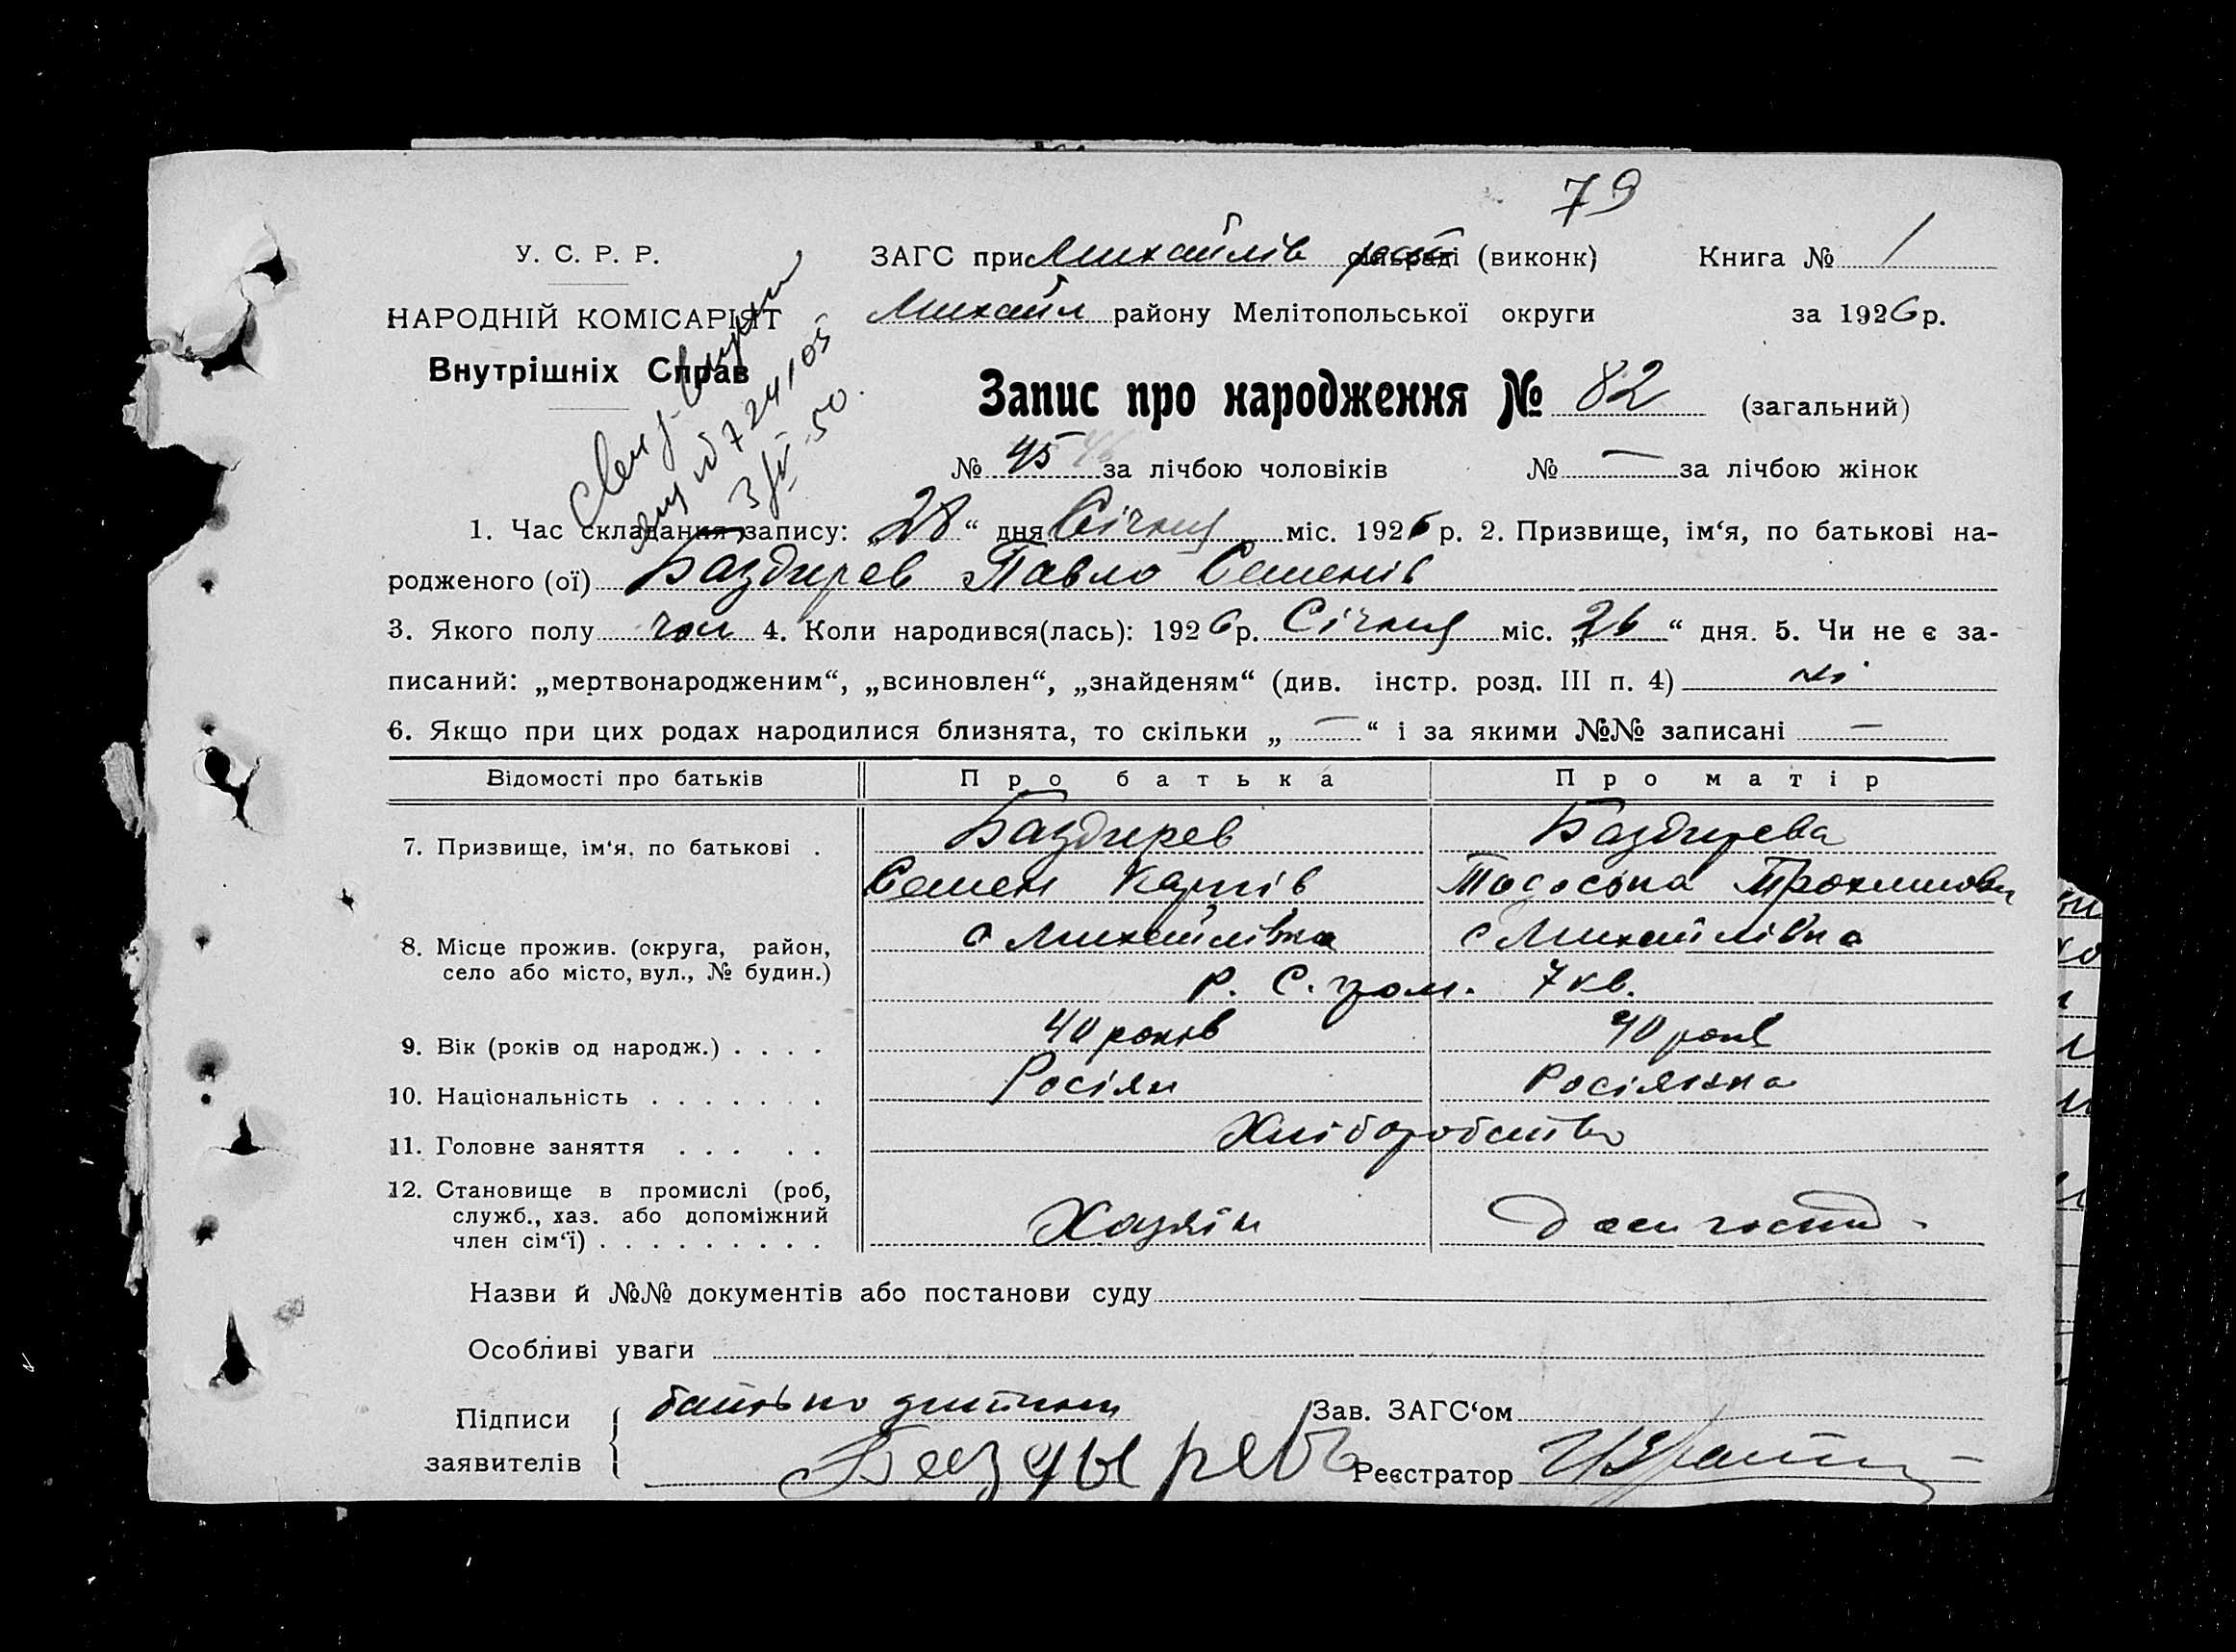 79
У. С. Р. Р.
НАРОДНІЙ КОМІСАРІЯТ
Внутрішніх Справ
ЗАГС при Михайлів сільраді (виконк) Книга № 1
Михайл району Мелітопольської округи за 1926 р.
Запис про народження № 82 (загальний)
№ 45 46 за лічбою чоловіків № — за лічбою жінок
№ 724105
50.
1. Час складання запису: „28“ дня Січня міс. 1926 р. 2. Призвище, ім‘я, по батькові на-
родженого (ої) Баздирев Павло Семенів
3. Якого полу чол 4. Коли народився(лась): 1926 р. Січня міс. „26“ дня. 5. Чи не є за-
писаний: „мертвонародженим“, „всиновлен“, „знайденям“ (див. інстр. розд. III п. 4) ні
6. Якщо при цих родах народилися близнята, то скільки „—“ і за якими №№ записані —
Відомості про батьків Про батька Про матір
7. Призвище, ім‘я, по батькові . Баздирев Баздирева
Семен Карпів Тодоська Трохимова
8. Місце прожив. (округа, район, село або місто, вул., № будин.) с Михайлівка с Михайлівка
Р. С. гром. 7 кв.
9. Вік (років од народж.) . . . . 40 років 40 років
10. Національність . . . . . . . Росіян Росіянка
11. Головне заняття . . . . . Хліборобство
12. Становище в промислі (роб, служб., хаз. або допоміжний член сім‘ї) . . . . . . . . . Хазяїн Дом господ.
Назви й №№ документів або постанови суду
Особливі уваги
Підписи заявителів батько дитини Зав. ЗАГС‘ом
Баздыревъ Реєстратор